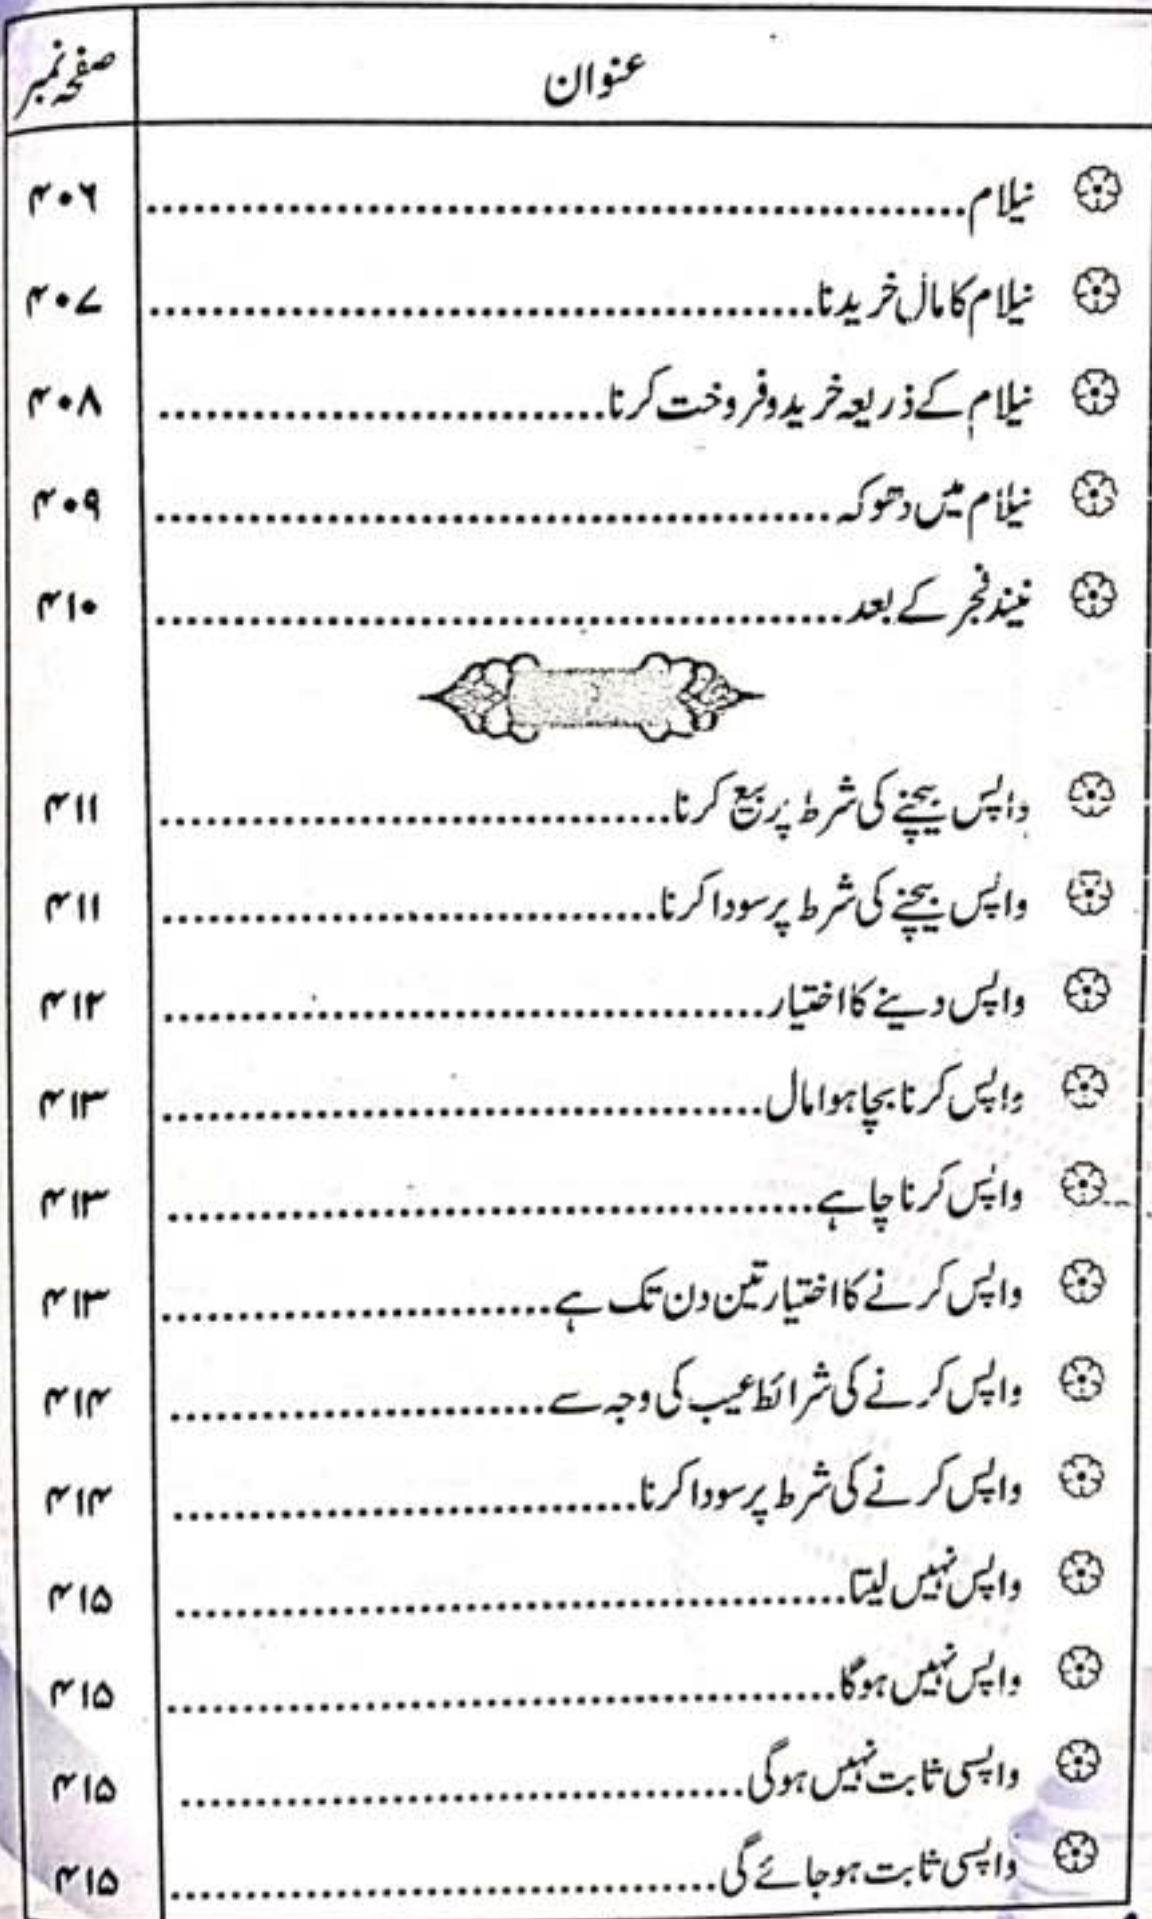 عنوان صفحہ نمبر
نیلام ۴۰۶
نیلام کا مال خریدنا ۴۰۷
نیلام کے ذریعہ خرید و فروخت کرنا ۴۰۸
نیلام میں دھوکہ ۴۰۹
نیند فجر کے بعد ۴۱۰
واپس بیچنے کی شرط پر بیع کرنا ۴۱۱
واپس بیچنے کی شرط پر سودا کرنا ۴۱۱
واپس دینے کا اختیار ۴۱۲
واپس کرنا بچا ہوا مال ۴۱۳
واپس کرنا چاہے ۴۱۳
واپس کرنے کا اختیار تین دن تک ہے ۴۱۳
واپس کرنے کی شرائط عیب کی وجہ سے ۴۱۴
واپس کرنے کی شرط پر سودا کرنا ۴۱۴
واپس نہیں لیتا ۴۱۵
واپس نہیں ہوگا ۴۱۵
واپسی ثابت نہیں ہوگی ۴۱۵
واپسی ثابت ہو جائے گی ۴۱۵